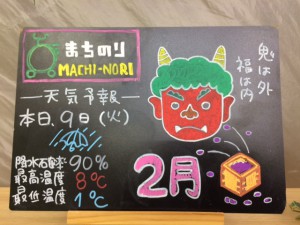 まちのり
MACHI-NORI
天気予報
本日、9日(火)
降水確率 90%
最高温度 8℃
最低温度 1℃
鬼は外
福は内
2月